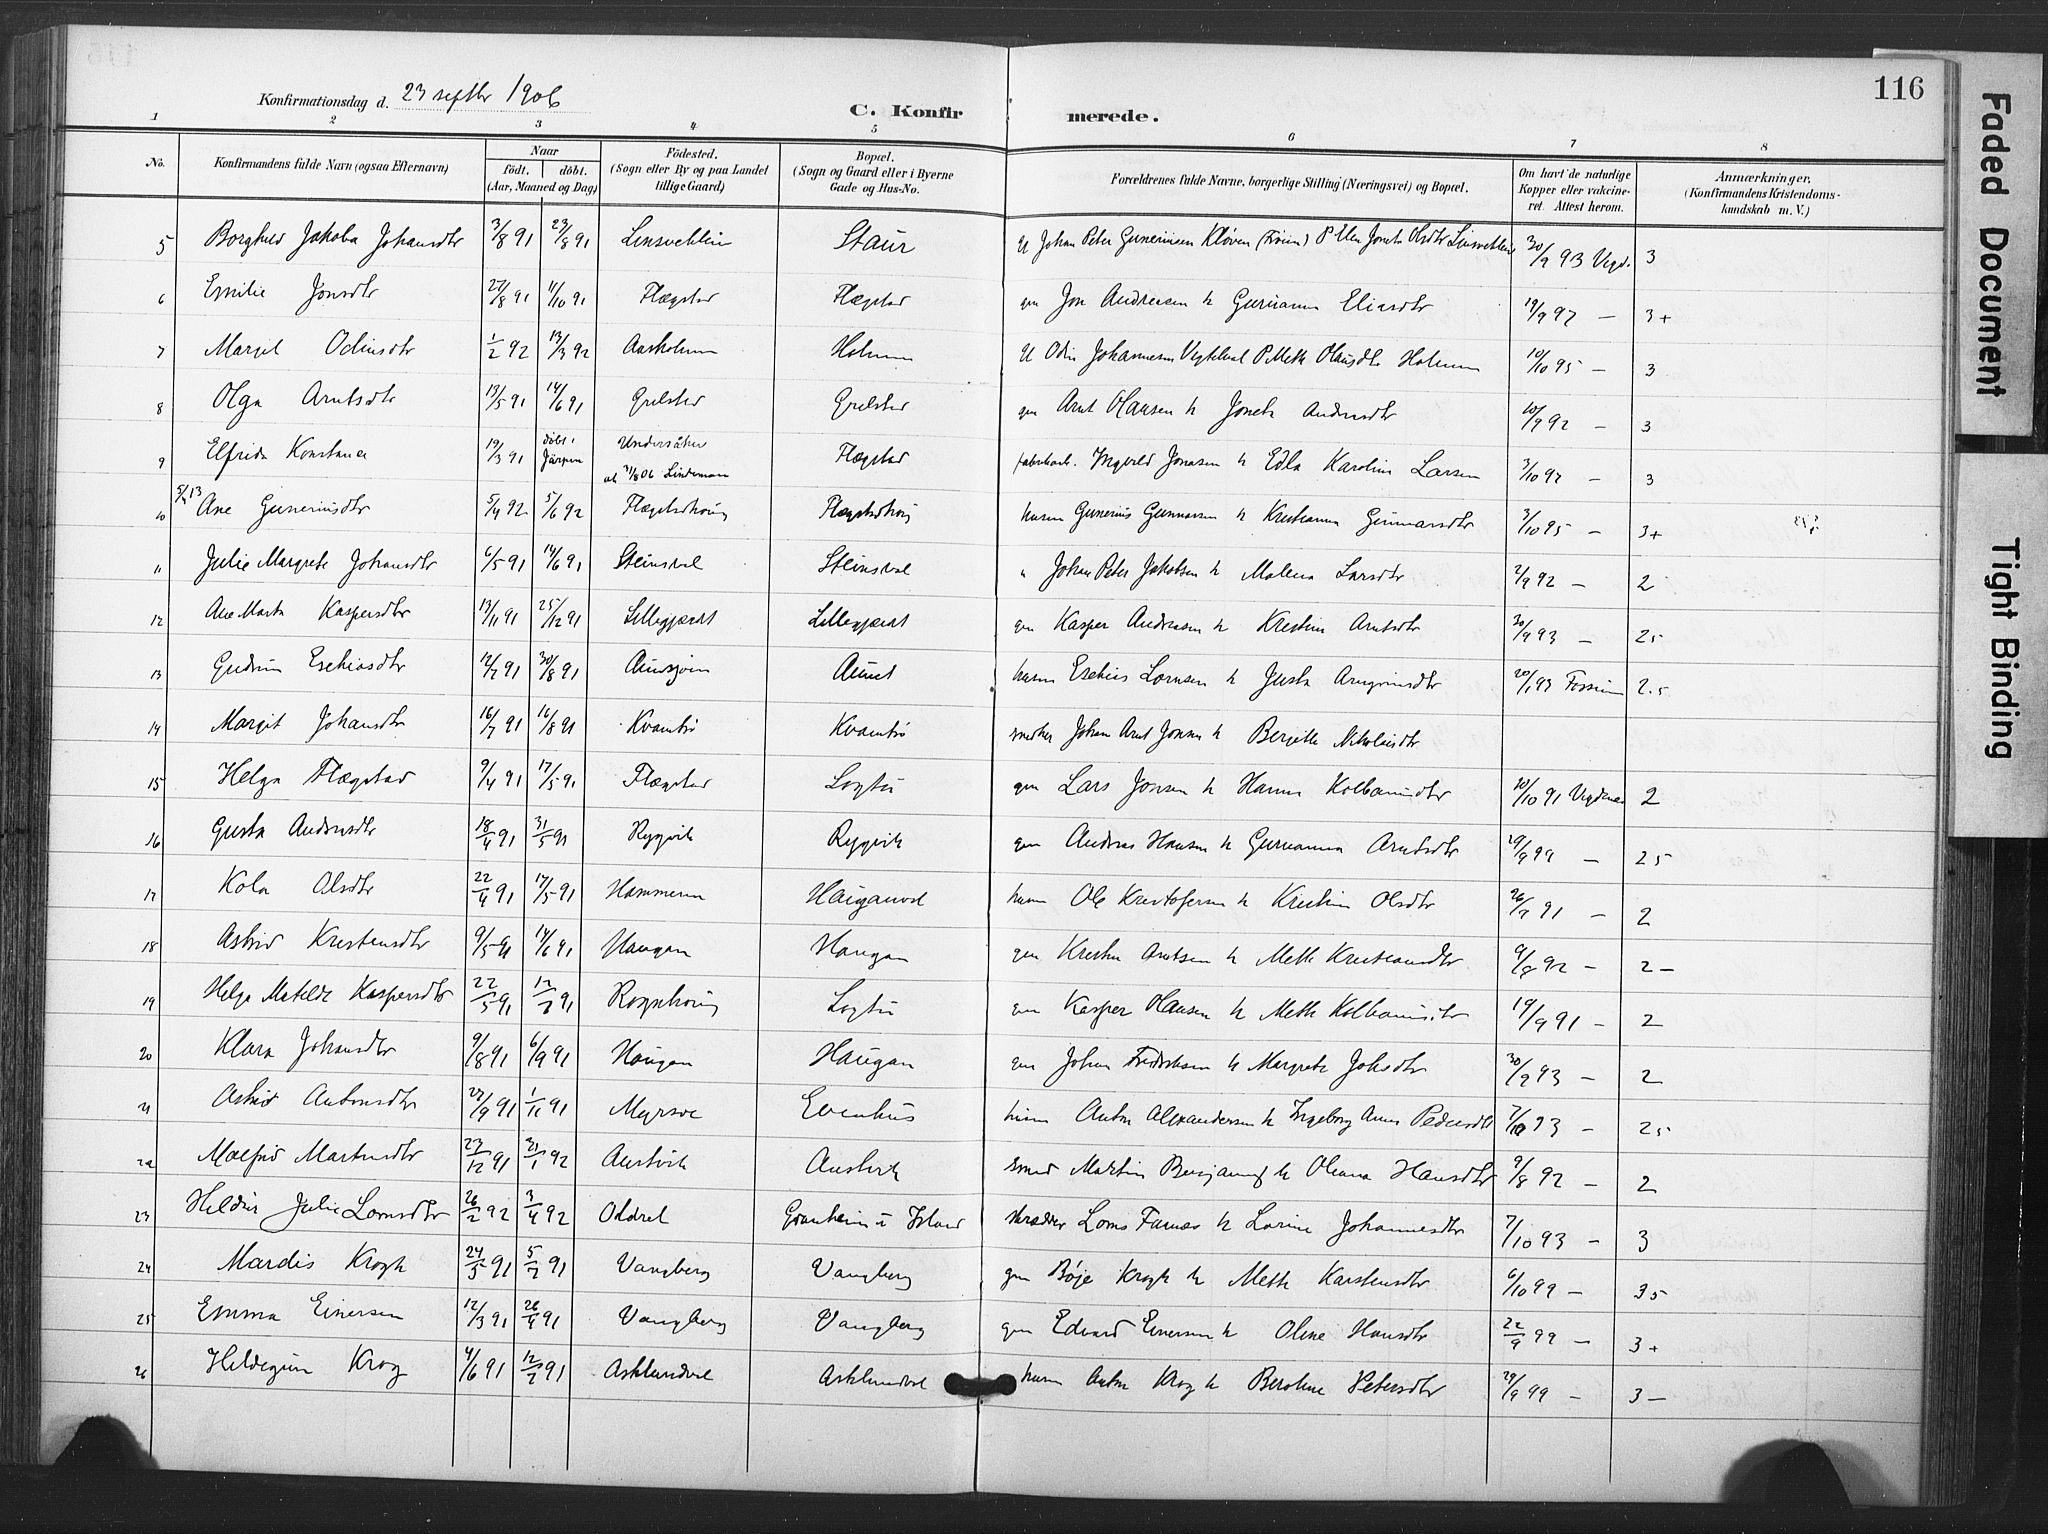 116
Konfirmationsdag d. 23 septbr 1906
C. Konfirmerede.
1 2 3 4 5 6 7 8
No. Konfirmandens fulde Navn (ogsaa Efternavn) Naar født. døbt. (Aar, Maaned og Dag) Födested. (Sogn eller By og paa Landet tillige Gaard) Bopæl. (Sogn og Gaard eller i Byerne Gade og Hus-No. Forældrenes fulde Navne, borgerlige Stilling (Næringsvei) og Bopæl. Om havt de naturlige Kopper eller vakcineret. Attest herom. Anmærkninger. (Konfirmandens Kristendomskundskab m. V.)
5 Borghild Jakoba Johansdtr 3/8 91 23/8 91 Staur Johan Peter Gunerius en Kløven 30/9 93 3
6 Emilie Jonsdtr 27/8 91 11/10 91 Flægstad Flægstad gm Jon Andreasen h Gurianna Eliasdtr 19/9 97 — 3+
7 Margit Odinsdtr 1/2 92 13/3 92 Aasholmen Holmen Odin Johannesen Holmen 10/10 95 — 3
8 Olga Arntsdtr 13/5 91 14/6 91 Grelstad Grelstad gm Arnt Olausen h Joneta Andersdtr 10/9 92 — 3
9 Elfrida Konstance 19/3 91 døbt i Järpen Undersåker Flægstad Ingvald Jonasen h Edla Karoline Larsen 3/10 97 — 3
10 Ane Guneriusdtr 5/4 92 5/6 92 Flægstadhaug Flægstadhaug husm Gunerius Gunnarsen h Kristianna Gunnarsdtr 3/10 95 — 3+
11 Julie Margrete Johansdtr 6/5 91 14/6 91 Steinsval Steinsval " Johan Peter Jakobsen h Malena Larsdtr 2/9 92 — 2
12 Ane Marta Kaspersdtr 13/11 91 25/12 91 Lillegjerdt Lillegjerdt gm Kasper Andreasen h Kristine Arntsdtr 30/9 93 — 25
13 Gudrun Esekiasdtr 12/7 91 30/8 91 Aunet husm Esekias Lornsen h Justa Arngrimsdtr 20/1 93 2.5
14 Margit Johansdtr 16/7 91 16/8 91 Kvambø Kvambø snedker Johan Arnt Jonsen h Bergitte Nikolaisdtr
15 Helga Flægstad 9/4 91 17/5 91 Flægstad Logtu gm Lars Jonsen h Hanna Kolbanusdtr 10/10 91 2
16 Gusta Andersdtr 18/4 91 31/5 91 Rygvik Rygvik gm Andreas Hansen h Gurianna Arntsdtr 29/9 99 — 25
17 Kola Olsdtr 22/4 91 17/5 91 Hammeren husm Ole Kristofersen h Kristine Olsdtr 26/9 91 — 2
18 Astrid Kristensdtr 9/5 91 14/6 91 Haugan Haugan gm Kristen Arntsen h Mette Kristiansdtr 9/8 92 — 2 —
19 Helga Matilde Kaspersdtr 22/5 91 Rognhaug Logtu gm Kasper Olausen h Mette Kolbanusdtr 19/9 91 — 2
20 Klara Johansdtr 9/8 91 6/9 91 Haugan Haugan gm Johan Fredriksen h Margrete Johsdtr 30/9 93 — 2
21 Astrid Antonsdtr 27/9 91 1/11 91 Evenhus husm Anton Alexandersen h Ingeborg Anna Pedersdtr 7/10 93 — 25
22 Malfrid Martinsdtr 23/12 91 31/1 92 Austvik Austvik smed Martin h Oleana Hansdtr 9/8 92 — 2
23 Julie Lornsdtr 26/2 92 3/4 92 Granheim skrædder Lorns h Larine Johannesdtr 7/10 93 — 3
24 Mardis Krogh 24/5 91 5/7 91 Vangberg Vangberg gm Bøje Krogh h Mette Karstensdtr 6/10 99 — 35
25 Emma Einersen 12/3 91 26/4 91 Vangberg Vangberg gm Edvard Einersen h Oline Hansdtr 22/9 99 — 3+
26 Hildegun Krog 4/6 91 12/7 91 Asklundval Asklundval husm Anton Krog h Beroline Petersdtr 29/9 99 — 3 —
Faded Document
Tight Binding